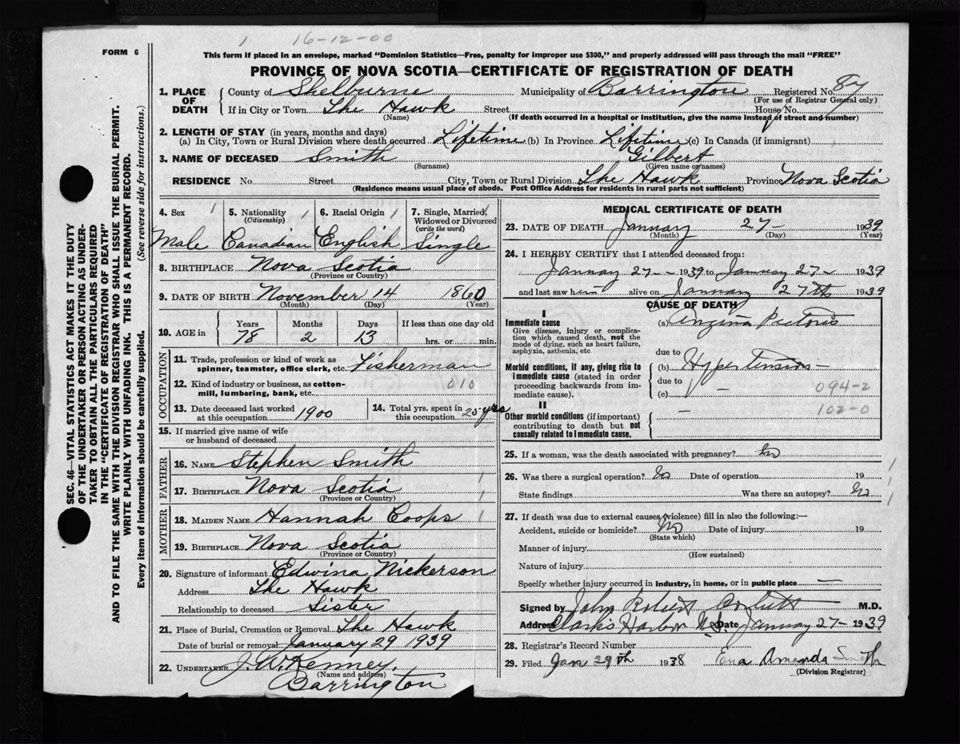 1 16-12-00
FORM 6
This form if placed in an envelope, marked "Dominion Statistics—Free, penalty for improper use $300," and properly addressed will pass through the mail "FREE"
PROVINCE OF NOVA SCOTIA—CERTIFICATE OF REGISTRATION OF DEATH
1. PLACE OF DEATH County of Shelburne Municipality of Barrington Registered No. 87
(For use of Registrar General only)
If in City or Town The Hawk Street House No.
(Name) (If death occurred in a hospital or institution, give the name instead of street and number)
2. LENGTH OF STAY (in years, months and days)
(a) In City, Town or Rural Division where death occurred Lifetime (b) In Province Lifetime (c) In Canada (if immigrant)
3. NAME OF DECEASED Smith Gilbert
(Surname) (Given name or names)
RESIDENCE No. Street City, Town or Rural Division The Hawk Province Nova Scotia
(Residence means usual place of abode. Post Office Address for residents in rural parts not sufficient)
4. Sex 1 5. Nationality 1 6. Racial Origin 1 7. Single, Married, Widowed or Divorced
(Citizenship) (write the word)
Male Canadian English Single
8. BIRTHPLACE Nova Scotia
(Province or Country)
9. DATE OF BIRTH November 14 1860
(Month) (Day) (Year)
10. AGE in Years Months Days If less than one day old
78 2 13 hrs. or min.
OCCUPATION
11. Trade, profession or kind of work as spinner, teamster, office clerk, etc. Fisherman
12. Kind of industry or business, as cotton-mill, lumbering, bank, etc. 010
13. Date deceased last worked at this occupation 1900 14. Total yrs. spent in this occupation 25 yrs
15. If married give name of wife or husband of deceased
FATHER
16. NAME Stephen Smith
17. BIRTHPLACE Nova Scotia 1
(Province or Country)
MOTHER
18. MAIDEN NAME Hannah Coops 1
19. BIRTHPLACE Nova Scotia
(Province or Country)
20. Signature of informant Edwina Nickerson
Address The Hawk
Relationship to deceased Sister
21. Place of Burial, Cremation or Removal The Hawk
Date of burial or removal January 29 1939
22. UNDERTAKER J. A. Kenney,
(Name and address)
Barrington
MEDICAL CERTIFICATE OF DEATH
23. DATE OF DEATH January 27- 1939
(Month) (Day) (Year)
24. I HEREBY CERTIFY that I attended deceased from:
January 27- 1939 to January 27- 1939
and last saw him alive on January 27th 1939
CAUSE OF DEATH
I
Immediate cause (a) Angina Pectoris
Give disease, injury or complication which caused death, not the mode of dying, such as heart failure, asphyxia, asthenia, etc
due to
Morbid conditions, if any, giving rise to immediate cause (stated in order proceeding backwards from immediate cause).
(b) Hypertension
due to
(c) 094-2
II
102-0
Other morbid conditions (if important) contributing to death but not causally related to immediate cause.
25. If a woman, was the death associated with pregnancy? No
26. Was there a surgical operation? No Date of operation 19
State findings Was there an autopsy? No
27. If death was due to external causes (violence) fill in also the following:—
Accident, suicide or homicide? No Date of injury 19
(State which)
Manner of injury
(How sustained)
Nature of injury
Specify whether injury occurred in industry, in home, or in public place —
Signed by John Robert M.D.
Address Clark's Harbor N.S. Date January 27- 1939
28. Registrar's Record Number
29. Filed Jan 29th 1938 Eva Amanda Smith
(Division Registrar)
SEC. 46—VITAL STATISTICS ACT MAKES IT THE DUTY
OF THE UNDERTAKER OR PERSON ACTING AS UNDER-
TAKER TO OBTAIN ALL THE PARTICULARS REQUIRED
IN THE "CERTIFICATE OF REGISTRATION OF DEATH"
AND TO FILE THE SAME WITH THE DIVISION REGISTRAR WHO SHALL ISSUE THE BURIAL PERMIT.
WRITE PLAINLY WITH UNFADING INK. THIS IS A PERMANENT RECORD.
Every item of information should be carefully supplied. (See reverse side for instructions.)